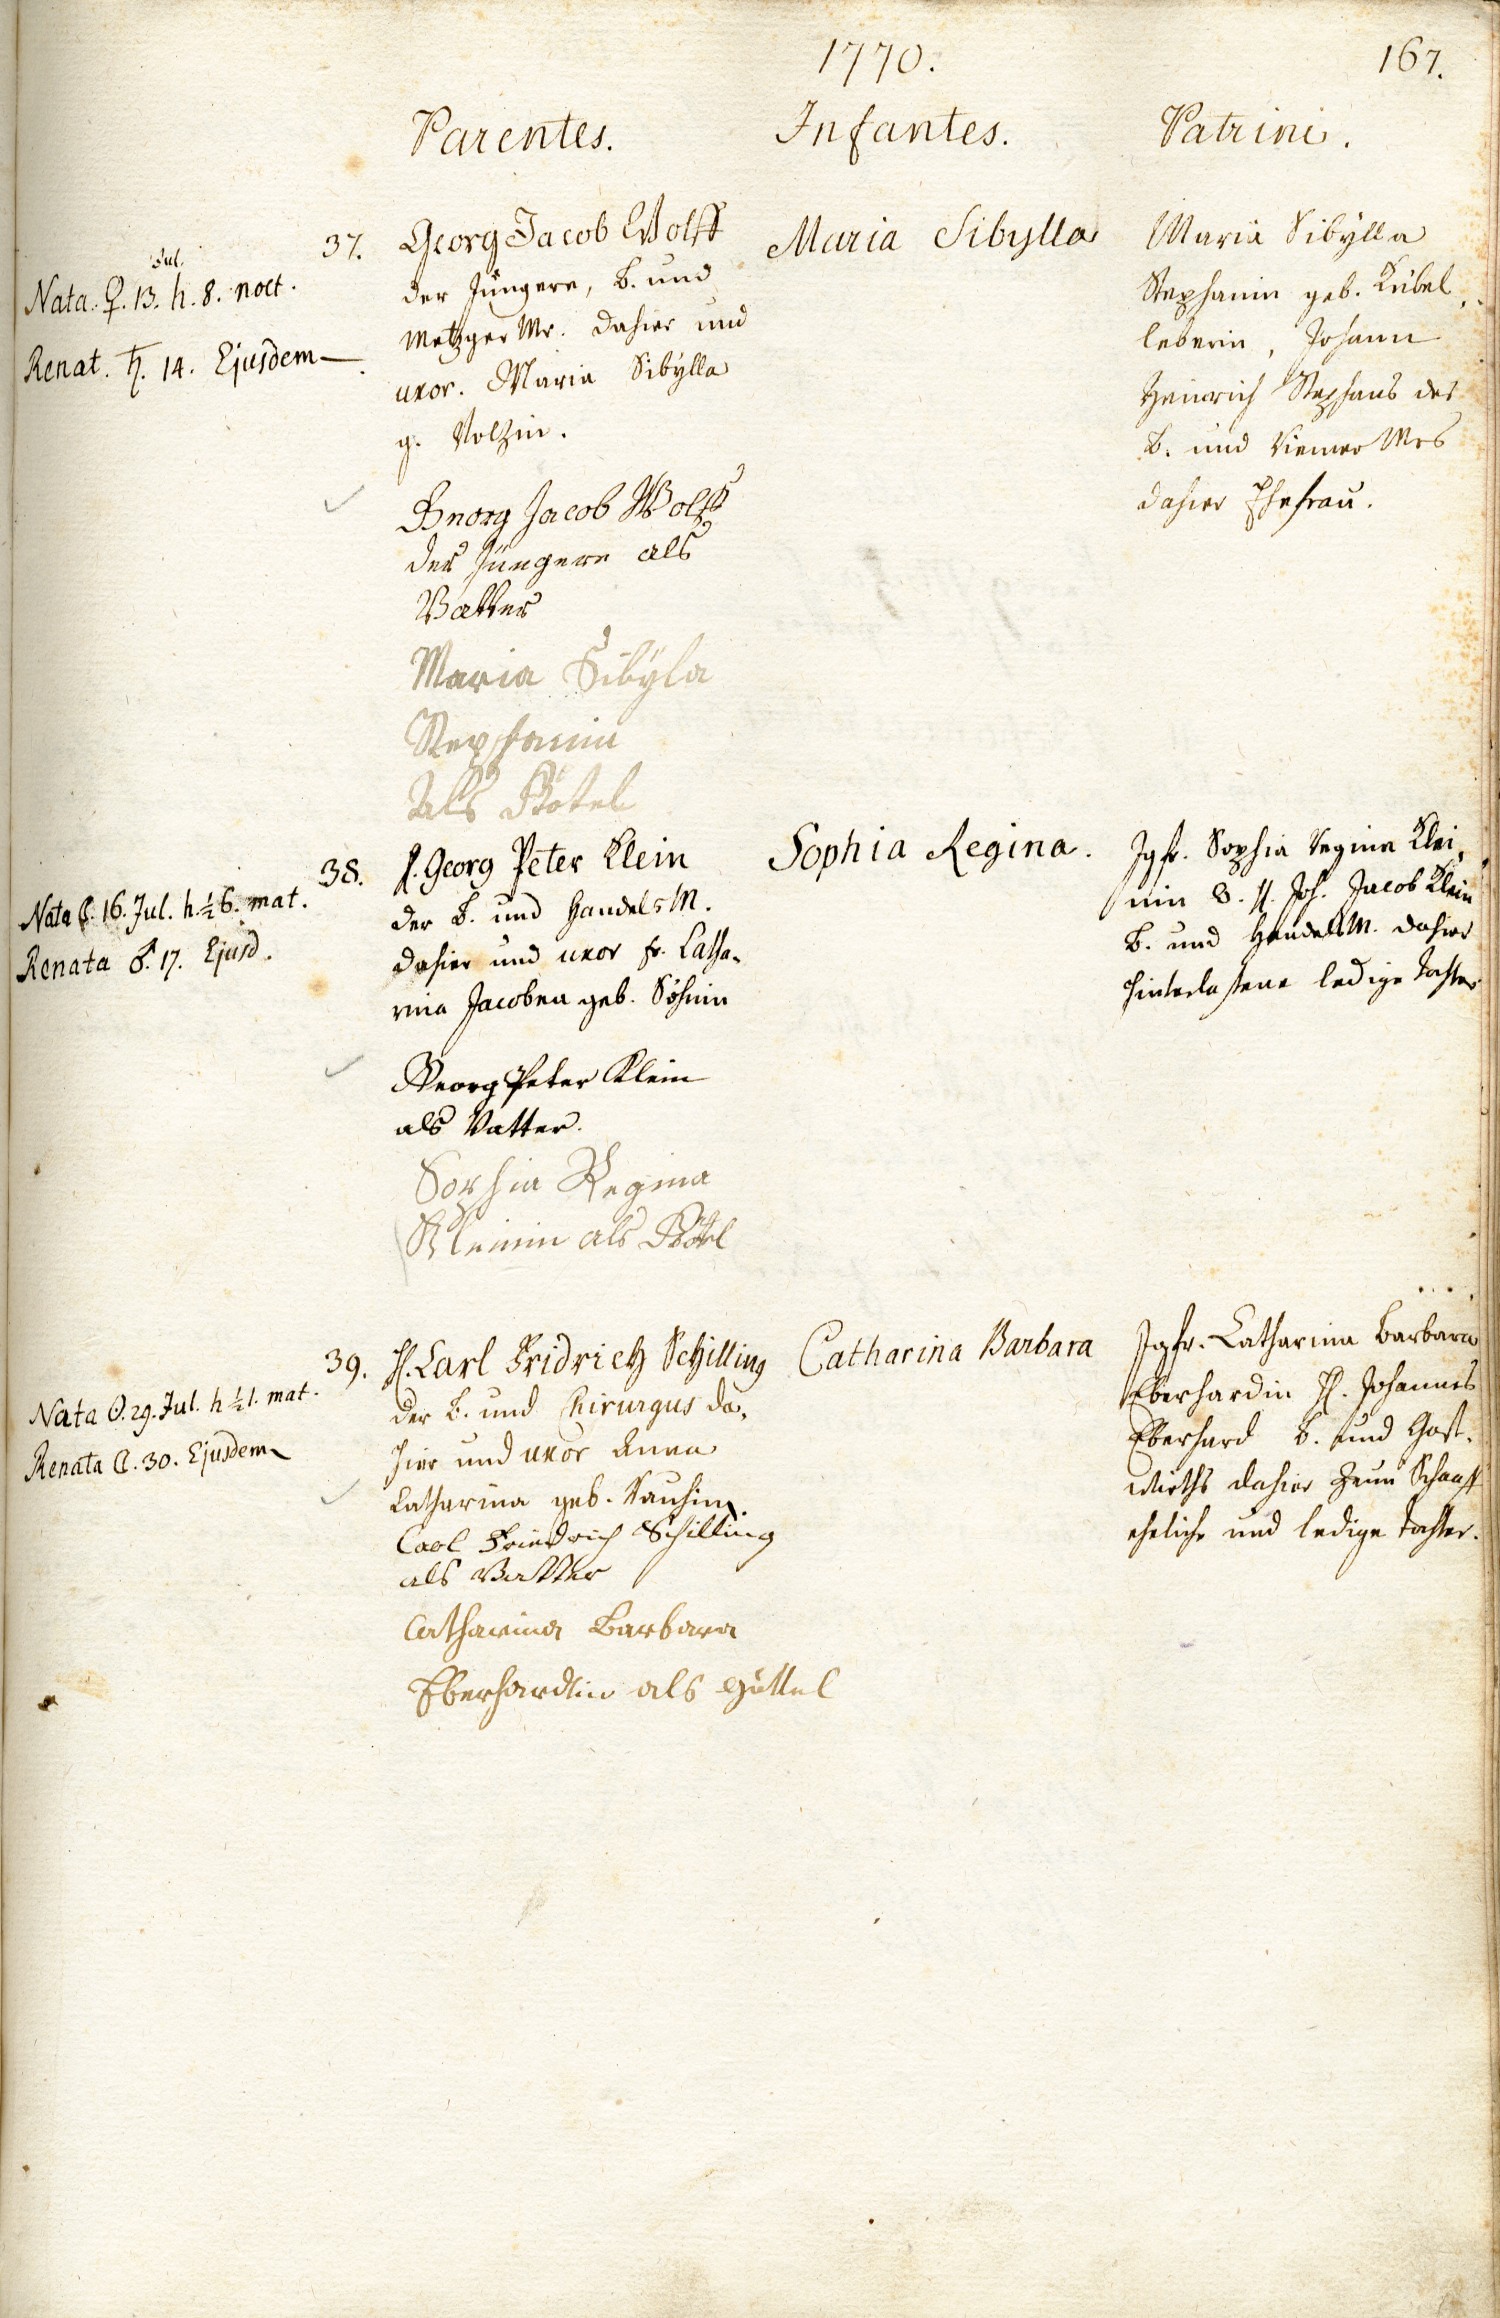 1770.
167.
Parentes.
Infantes.
Patrini.
Jul.
Nata. ♀. 13. h. 8. noct.
Renat. ♄. 14. Ejusdem
37.
Georg Jacob Wolff
der Jüngere, B. und
Metzger Mr. dahier und
uxor. Maria Sibÿlla
g. Volzin.
Georg Jacob Wolff
der Jüngere als
Vatter
Maria Sibÿla
Stephanin
Als Götel
Maria Sibylla
Maria Sibÿlla
Stephanin geb. Kübel,
leberin, Johann
Heinrich Stephans des
B. und Kiemer Mrs
dahier Ehefrau.
Nata ☾. 16. Jul. h. ½ 6. mat.
Renata ♂. 17. Ejusd.
38.
H. Georg Peter Klein
der B. und HandelsM.
dahier und uxor fr. Catha-
rina Jacobea geb. Söhnin
Georg Peter Klein
als Vatter.
Sophia Regina
Kleinin als Göttel
Sophia Regina.
Jgfr. Sophia Regina Klei,
nin H. Joh. Jacob Klein
B. und HandelsM. dahier
hinterlassene ledige Tochter
Nata ☉. 29. Jul. h ½ 1. mat.
Renata ☾. 30. Ejusdem
39.
H. Carl Fridrich Schilling
der B. und Chirurgus da,
hier und uxor Anna
Catharina geb.
Carl Friedrich Schilling
als Vatter
Catharina Barbara
Eberhardtin als Göttel
Catharina Barbara
Jgfr. Catharina Barbara
Eberhardin H. Johannes
Eberhard B. und Gast-
wirths dahier zum Schaaff
eheliche und ledige Tochter.